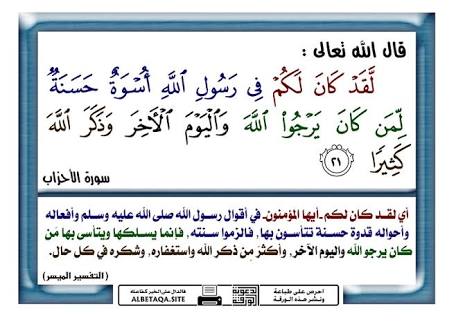 قال الله تعالى :
لَّقَدْ كَانَ لَكُمْ فِى رَسُولِ ٱللَّهِ أُسْوَةٌ حَسَنَةٌ
لِّمَن كَانَ يَرْجُوا۟ ٱللَّهَ وَٱلْيَوْمَ ٱلْـَٔاخِرَ وَذَكَرَ ٱللَّهَ
كَثِيرًا ٢١
سورة الأحزاب
أي لقد كان لكم -أيها المؤمنون- في أقوال رسول الله صلى الله عليه وسلم وأفعاله
وأحواله قدوة حسنة تتأسون بها, فالزموا سنته, فإنما يسلكها ويتأسى بها مَن
كان يرجو الله واليوم الآخر, وأكثرَ من ذكر الله واستغفاره, وشكره في كل حال.
(التفسير الميسر)
احرص على طباعة
ونشر هذه الورقة
فالدال على الخير كفاعله
ALBETAQA.SITE